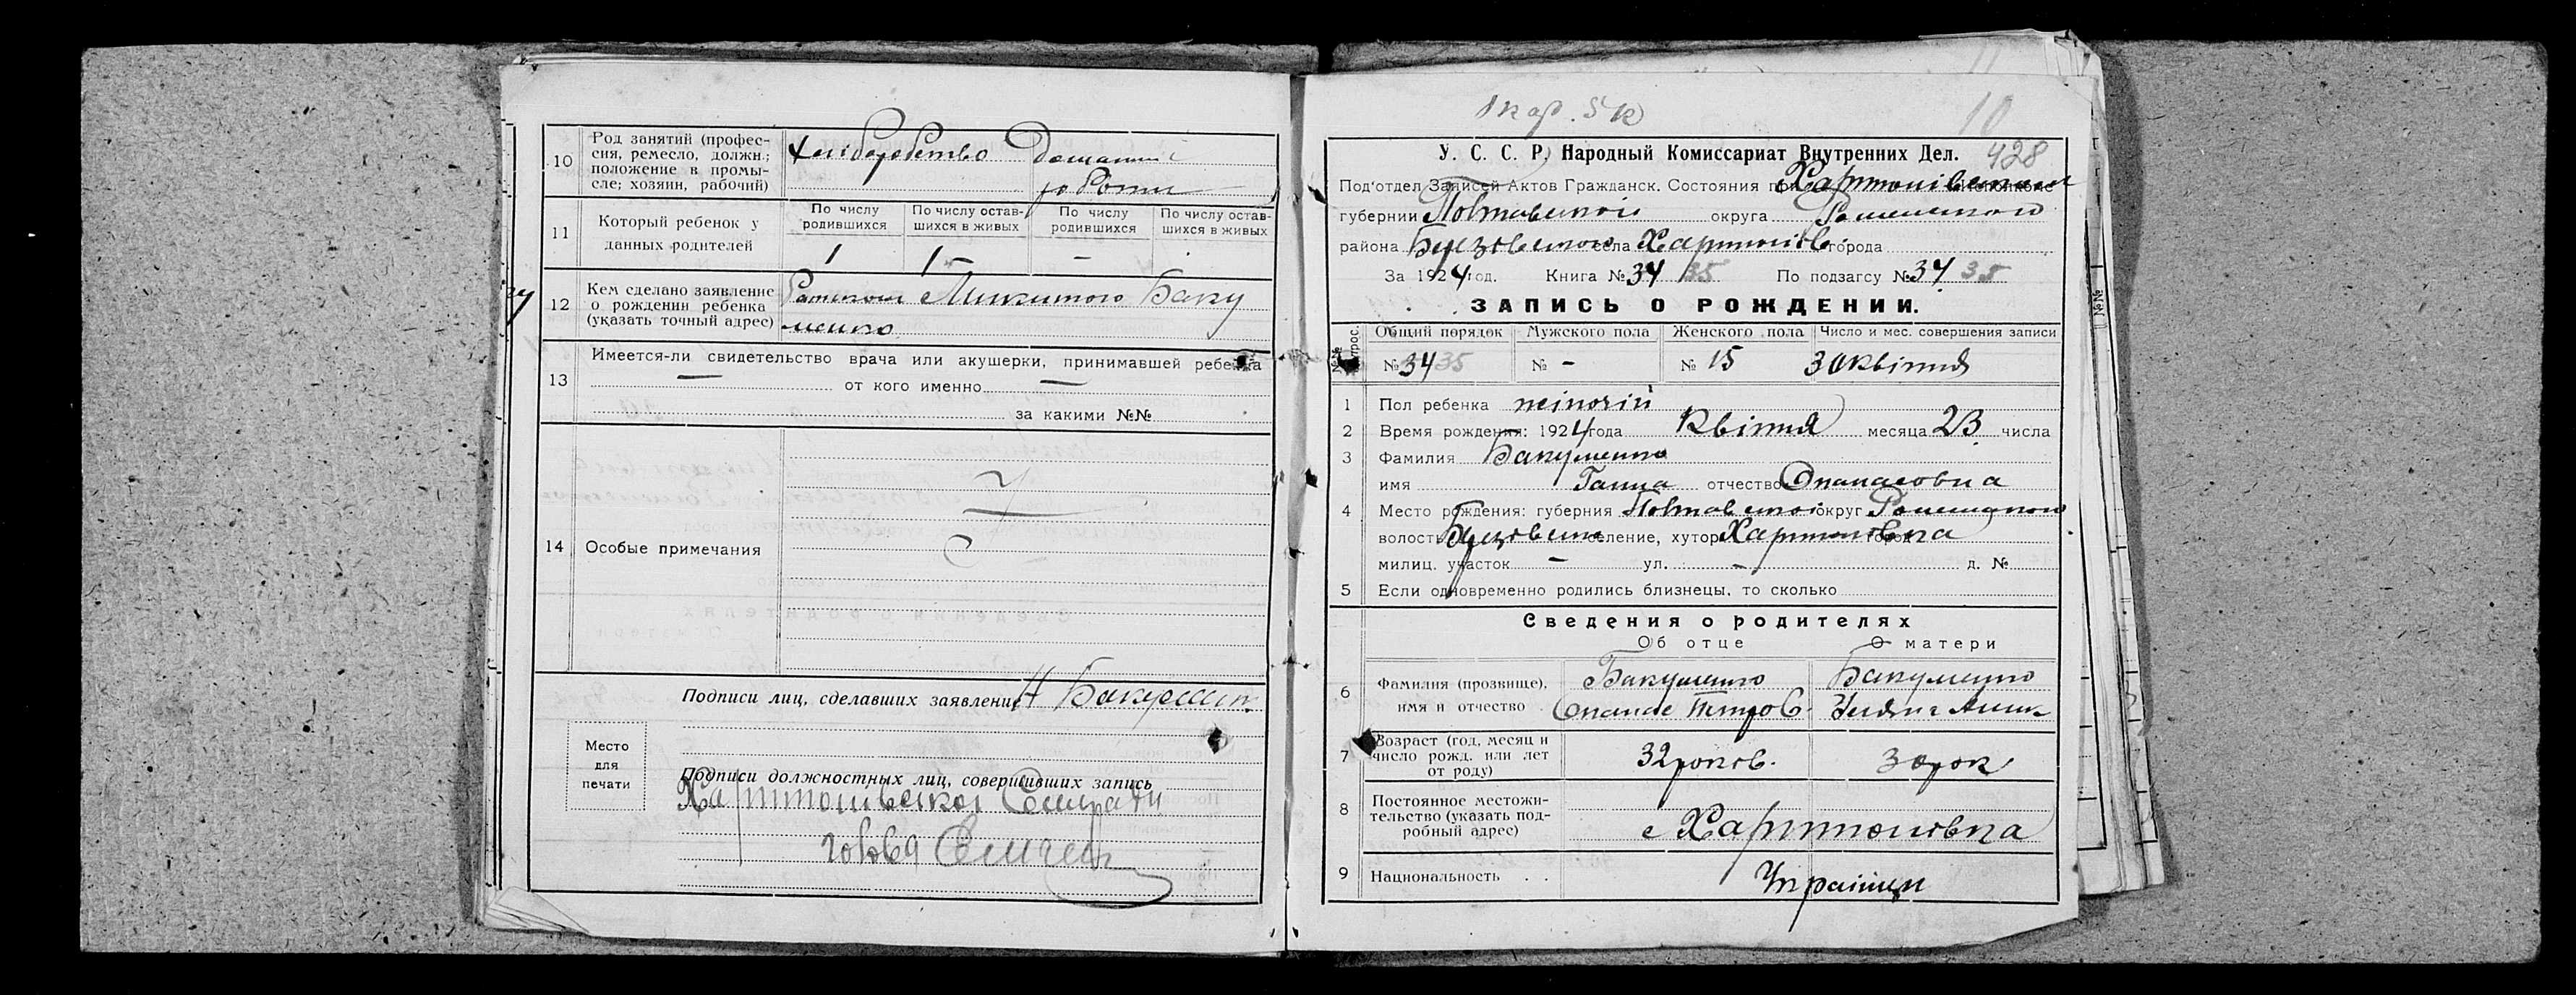 10 Род занятий (профес-
сия, ремесло, должн.;
положение в промы-
сле; хозяин, рабочий)
Хліборобство Домашні
роботи
11 Который ребенок у
данных родителей
По числу родившихся По числу остав-шихся в живых По числу родившихся По числу остав-шихся в живых
1 1 – –
12 Кем сделано заявление
о рождении ребенка
(указать точный адрес)
Микитою Баку
менко
13 Имеется-ли свидетельство врача или акушерки, принимавшей ребенка
— от кого именно —
за какими №№
14 Особые примечания
Подписи лиц, сделавших заявление Н Бакумен
Место
для
печати
Подписи должностных лиц, совершивших запись
Харитонівської Сельради
голова
1 кар. 5 к
10
У. С. С. Р. Народный Комиссариат Внутренних Дел. 428
Под'отдел Записей Актов Гражданск. Состояния при Харитонівском
губернии Полтавської округа Роменского
района села Харитонів. города
За 1924 год. Книга № 34 35 По подзагсу № 34 35
ЗАПИСЬ О РОЖДЕНИИ.
№№ вопрос. Общий порядок Мужского пола Женского пола Число и мес. совершения записи
№ 34 35 № – № 15 30 Квітня
1 Пол ребенка жіночій
2 Время рождения: 1924 года Квітня месяца 23 числа
3 Фамилия Бакуменко
имя Ганна отчество Опанасовна
4 Место рождения: губерния Полтавської округ Роменського
волость селение, хутор Харитоновка город
милиц. участок – ул. – д. №
5 Если одновременно родились близнецы, то сколько
Сведения о родителях
Об отце О матери
6 Фамилия (прозвище),
имя и отчество
Бакуменко Бакуменко
Опанас Петров.
7 Возраст (год, месяц и
число рожд. или лет
от роду)
32 роков. 30 рок
8 Постоянное местожи-
тельство (указать под-
робный адрес)
с Харитоновка
9 Национальность . . Українци